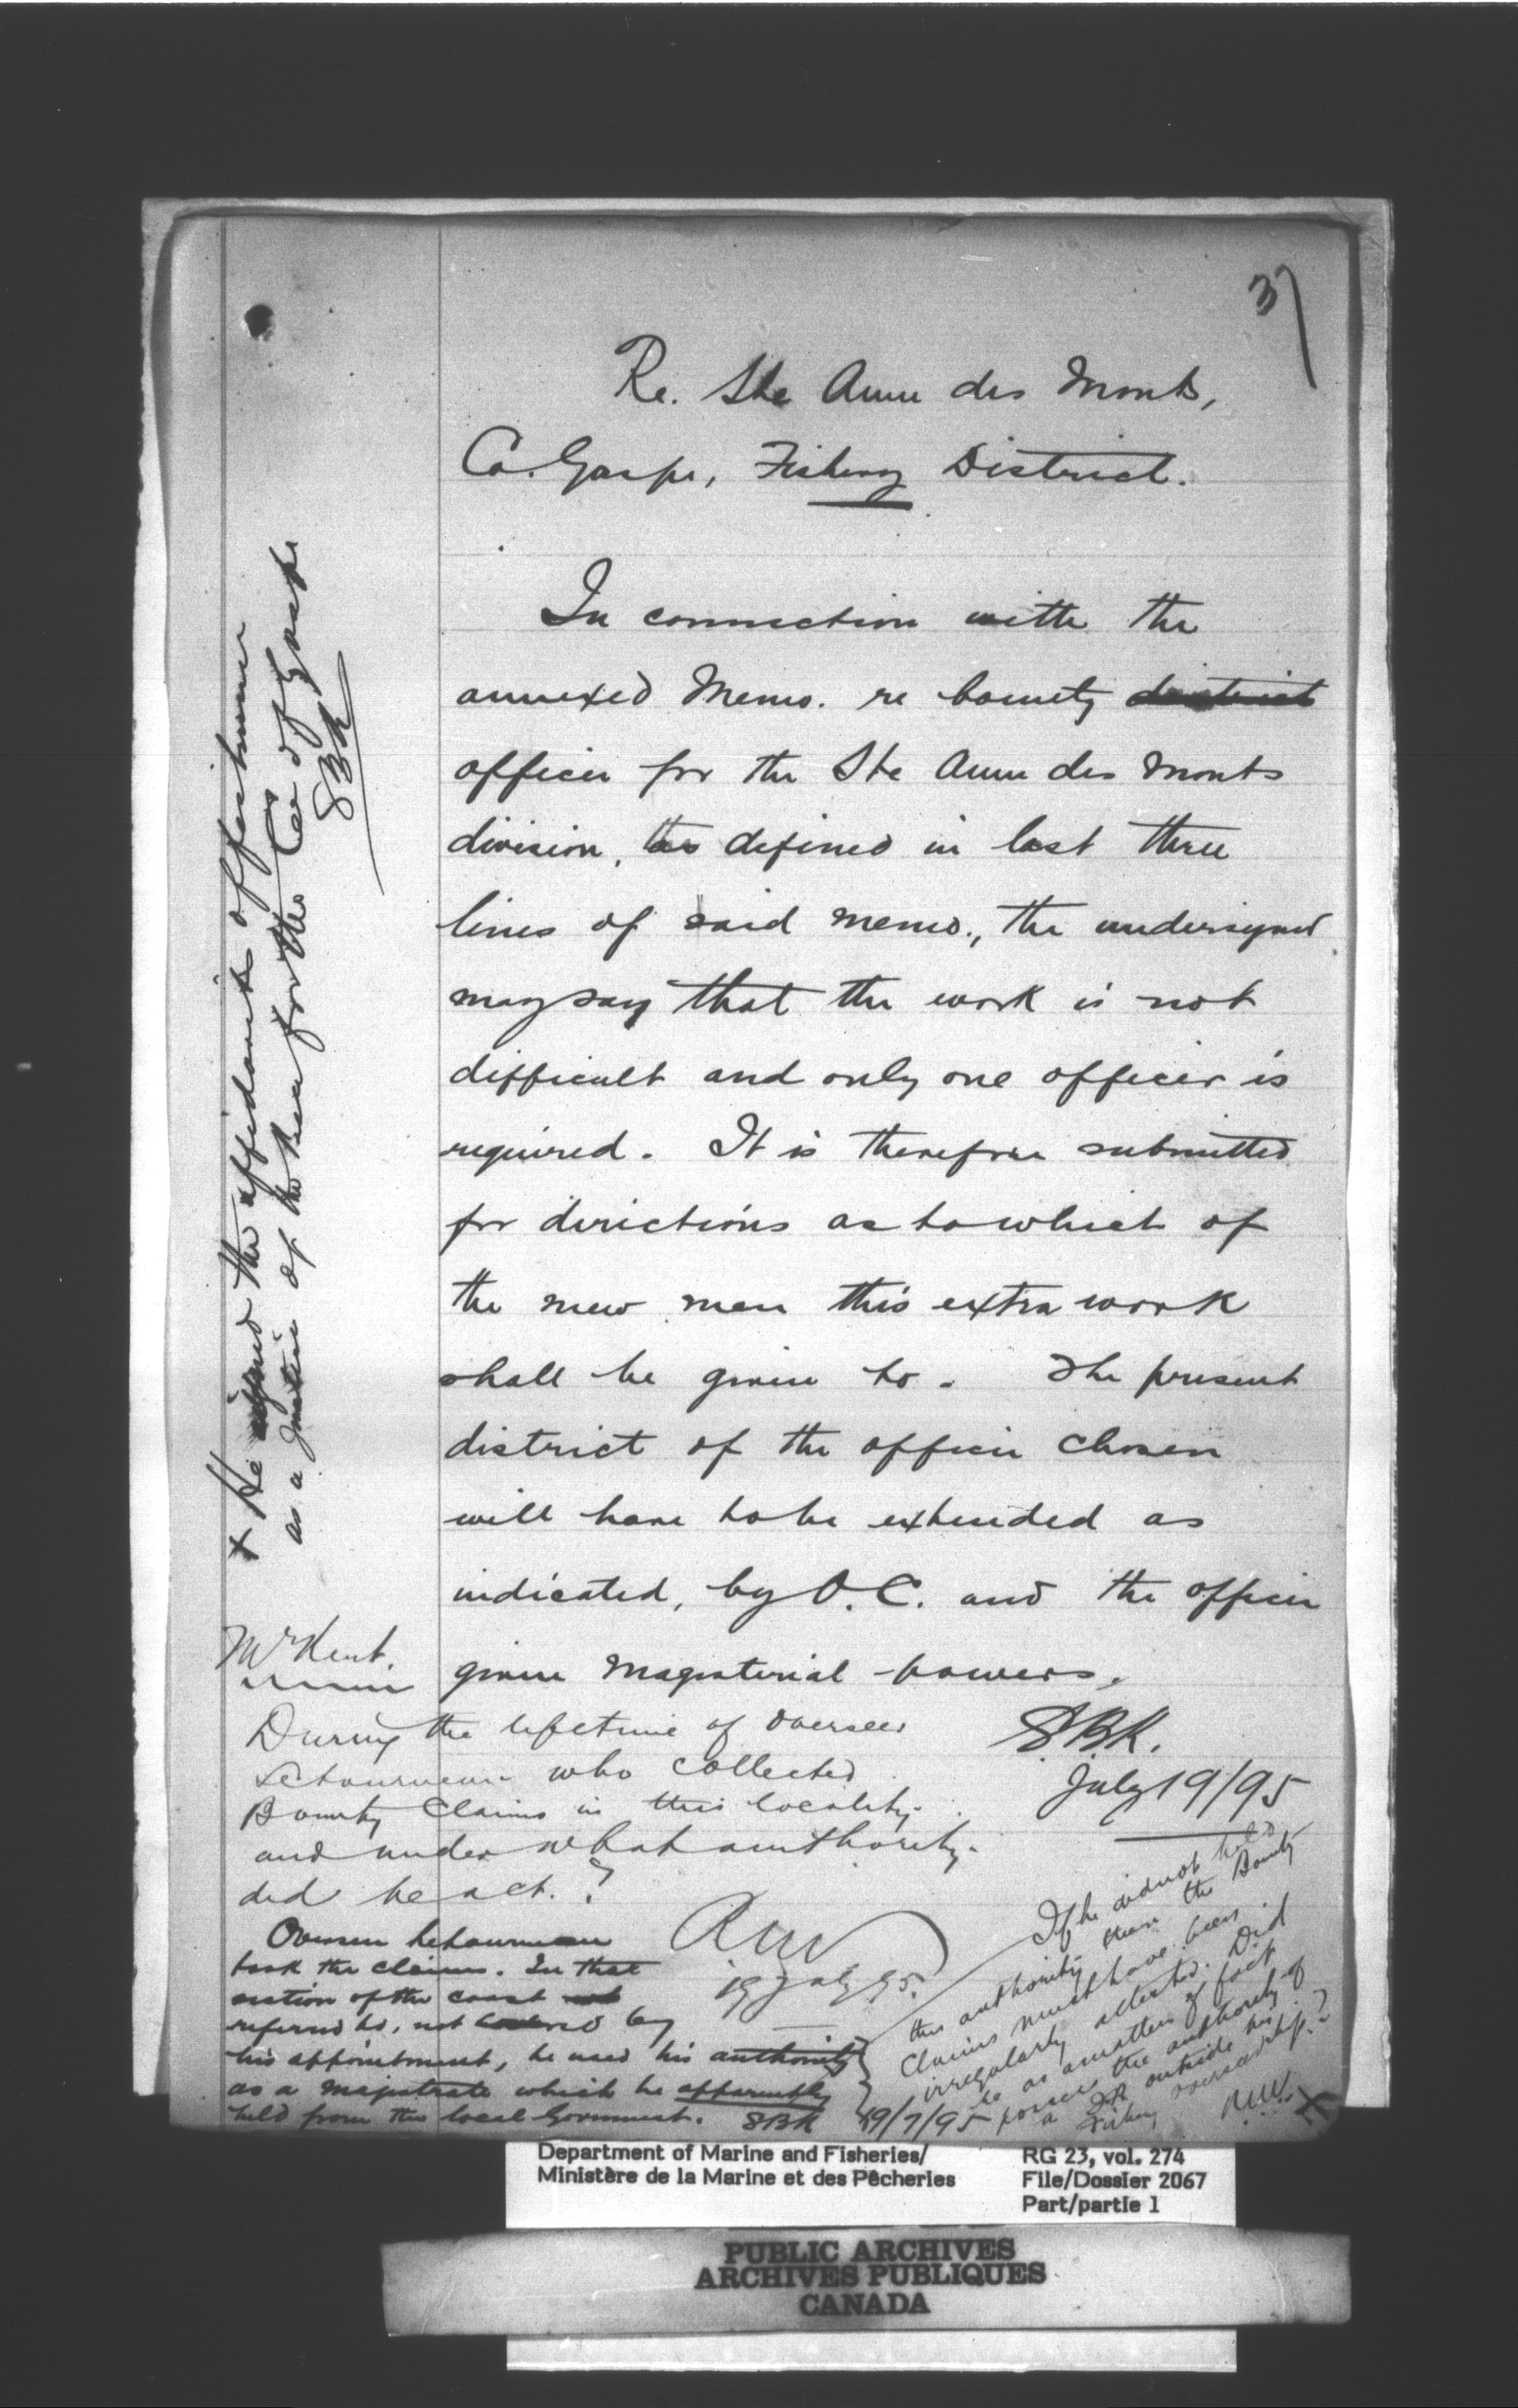 37
Re. Ste Anne des Monts,
Co. Gaspe, Fishery District.
In connection with the
annexed Memo. re bounty district
officer for the Ste Anne des Monts
division, as defined in last three
lines of said memo., the undersigned
may say that the work is not
difficult and only one officer is
required. It is therefore submitted
for directions as to which of
the new men this extra work
shall be given to. The present
district of the officer chosen
will have to be extended as
indicated, by O.C. and the officer
given magisterial powers.
SBK.
July 19/95
Mr Kent.
During the lifetime of Overseer
Letourneau who collected
Bounty Claims in this locality.
and under what authority.
did he act. ?
RNV
19 July 95.
Overseer Letourneau
took the claims. In that
section of the coast
referred to, not covered by
his appointment, he used his authority
as a magistrate which he apparently
held from the local Government. SBK 19/7/95
If he did not hold
this authority then the Bounty
Claims must have been
irregularly attested. Did
he as a matter of fact
possess the authority of
a JP outside his
Fishery overseership?
RNV
X
X He signed the affidavits of fishermen
as a Justice of the Peace for the Co of Gaspe
SBK
Department of Marine and Fisheries/
Ministère de la Marine et des Pêcheries
RG 23, vol. 274
File/Dossier 2067
Part/partie 1
PUBLIC ARCHIVES
ARCHIVES PUBLIQUES
CANADA